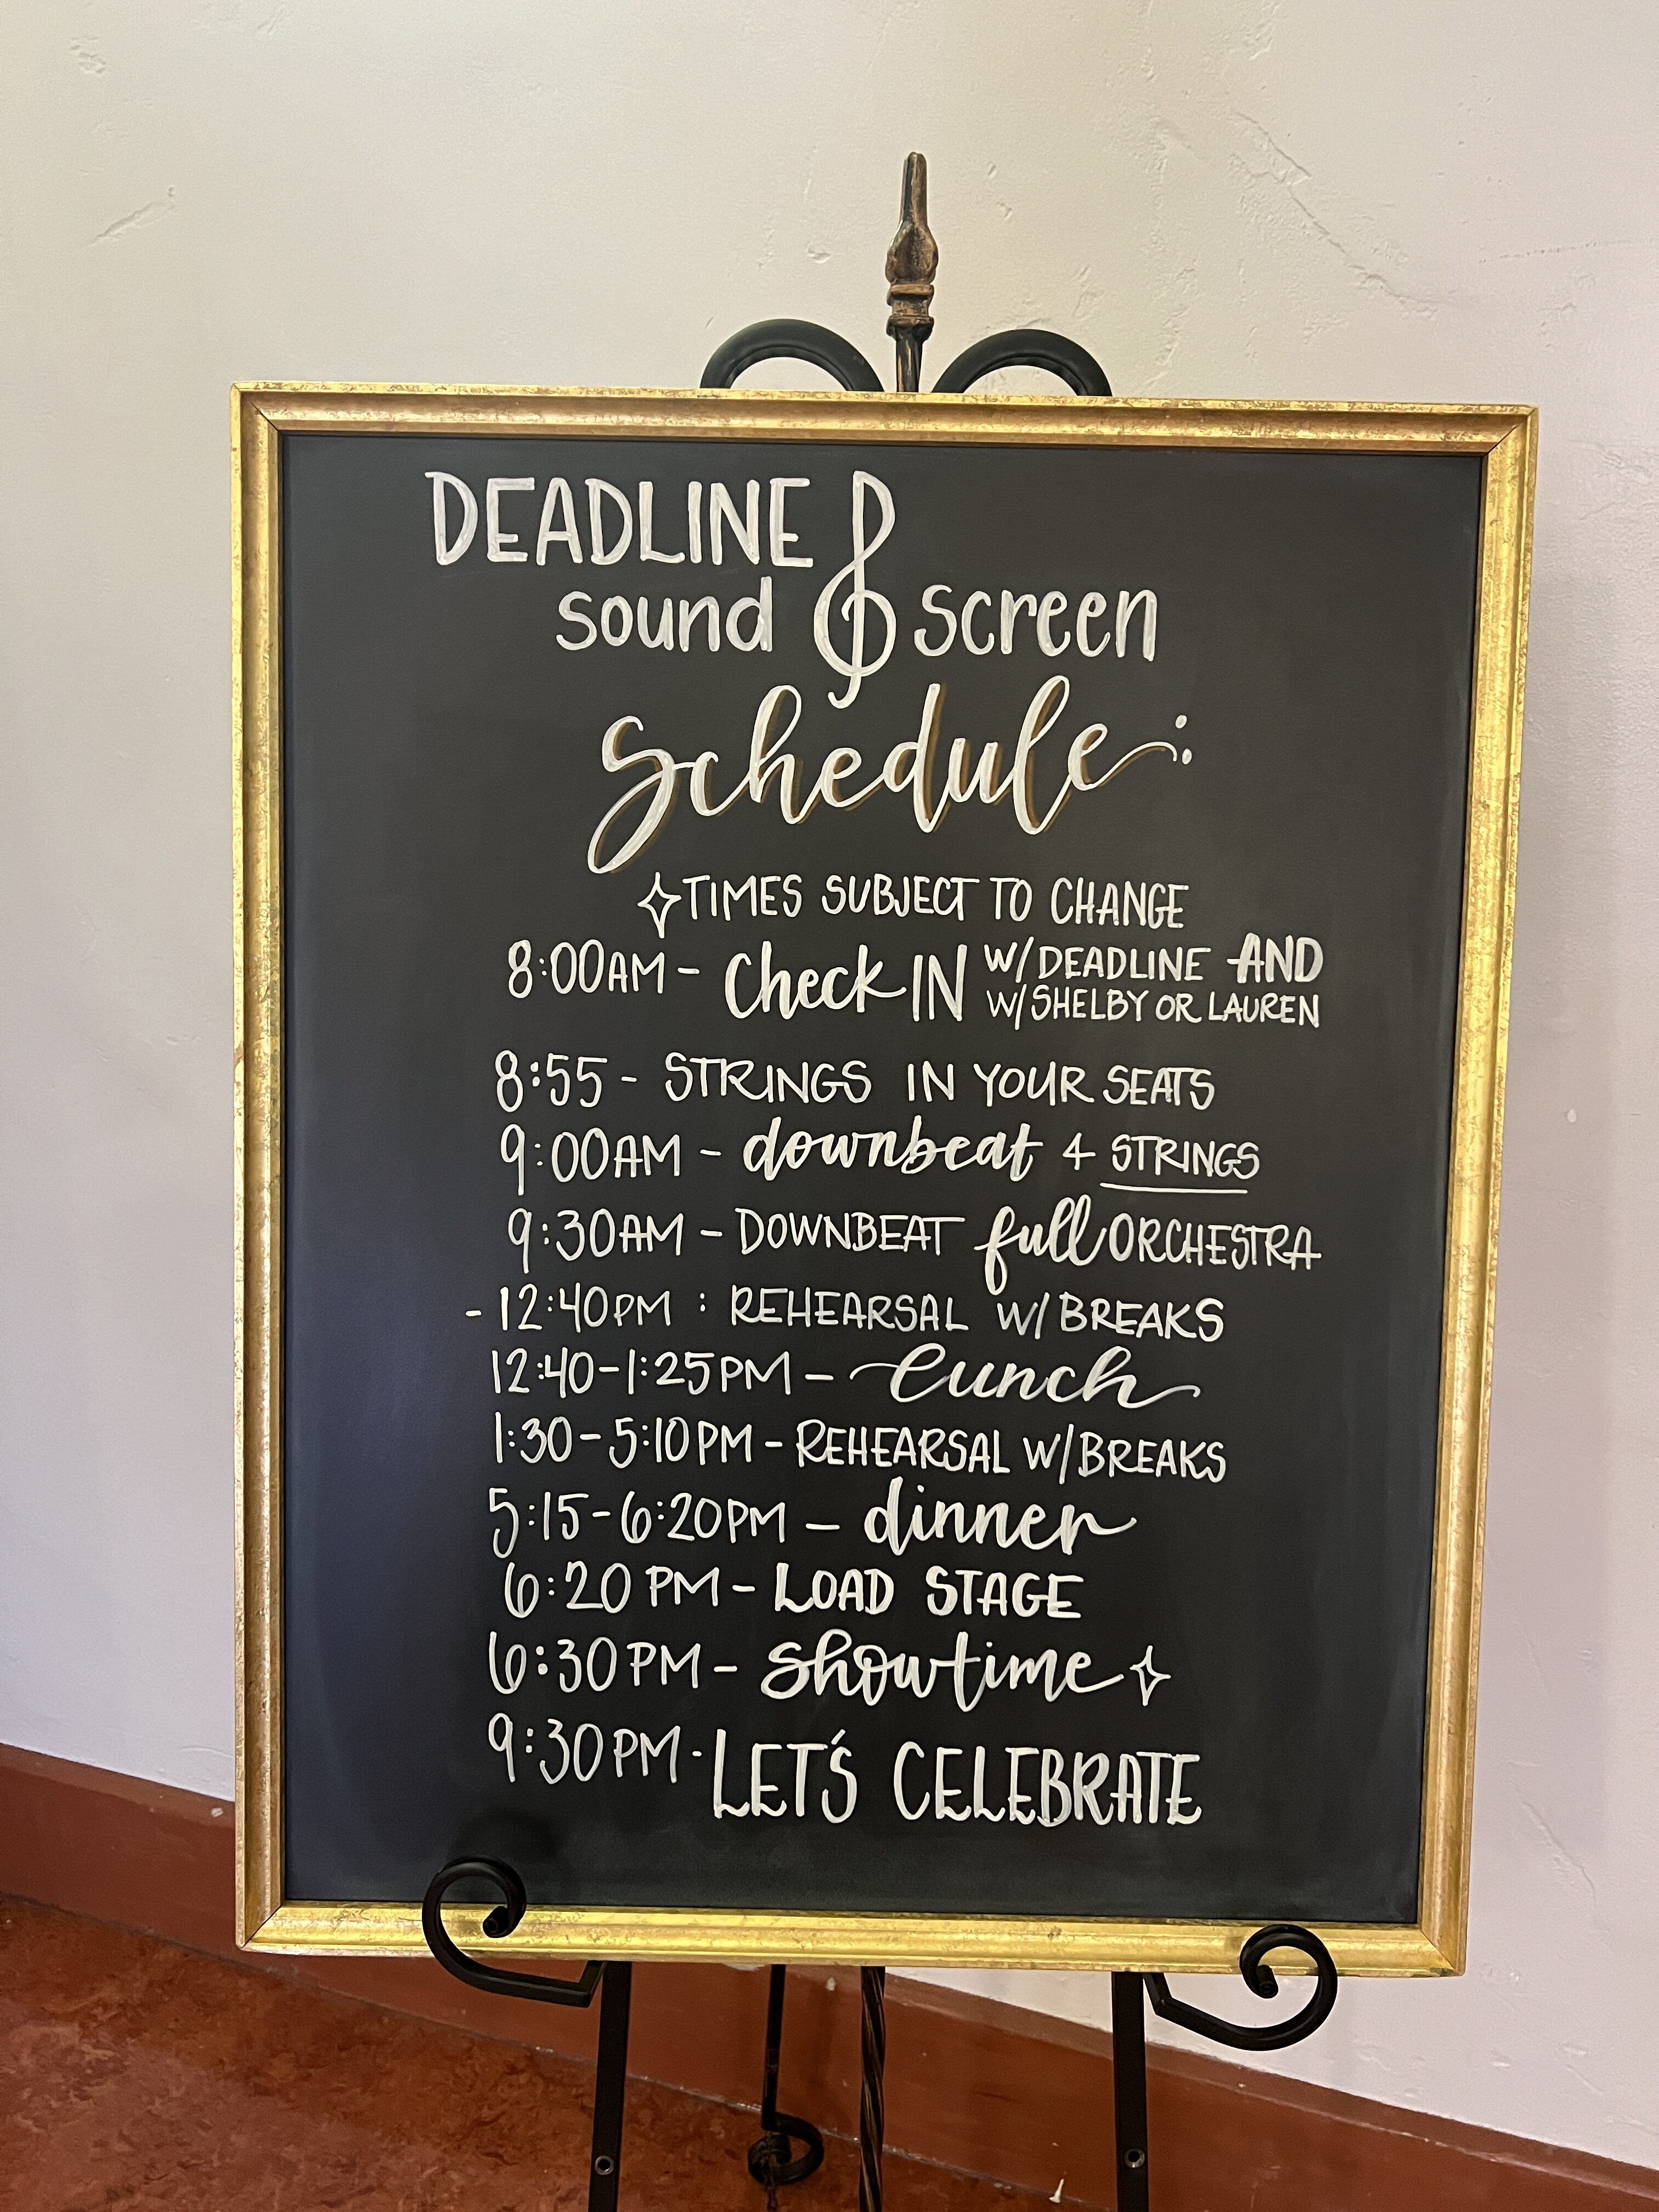 DEADLINE
sound & screen
Schedule:
TIMES SUBJECT TO CHANGE
8:00AM - Check IN W/ DEADLINE AND
W/ SHELBY OR LAUREN
8:55 - STRINGS IN YOUR SEATS
9:00AM - downbeat 4 STRINGS
9:30AM - DOWNBEAT full ORCHESTRA
- 12:40PM : REHEARSAL W/ BREAKS
12:40-1:25PM - Lunch
1:30-5:10PM - REHEARSAL W/ BREAKS
5:15-6:20PM - dinner
6:20 PM - LOAD STAGE
6:30 PM - Showtime
9:30PM - LET'S CELEBRATE